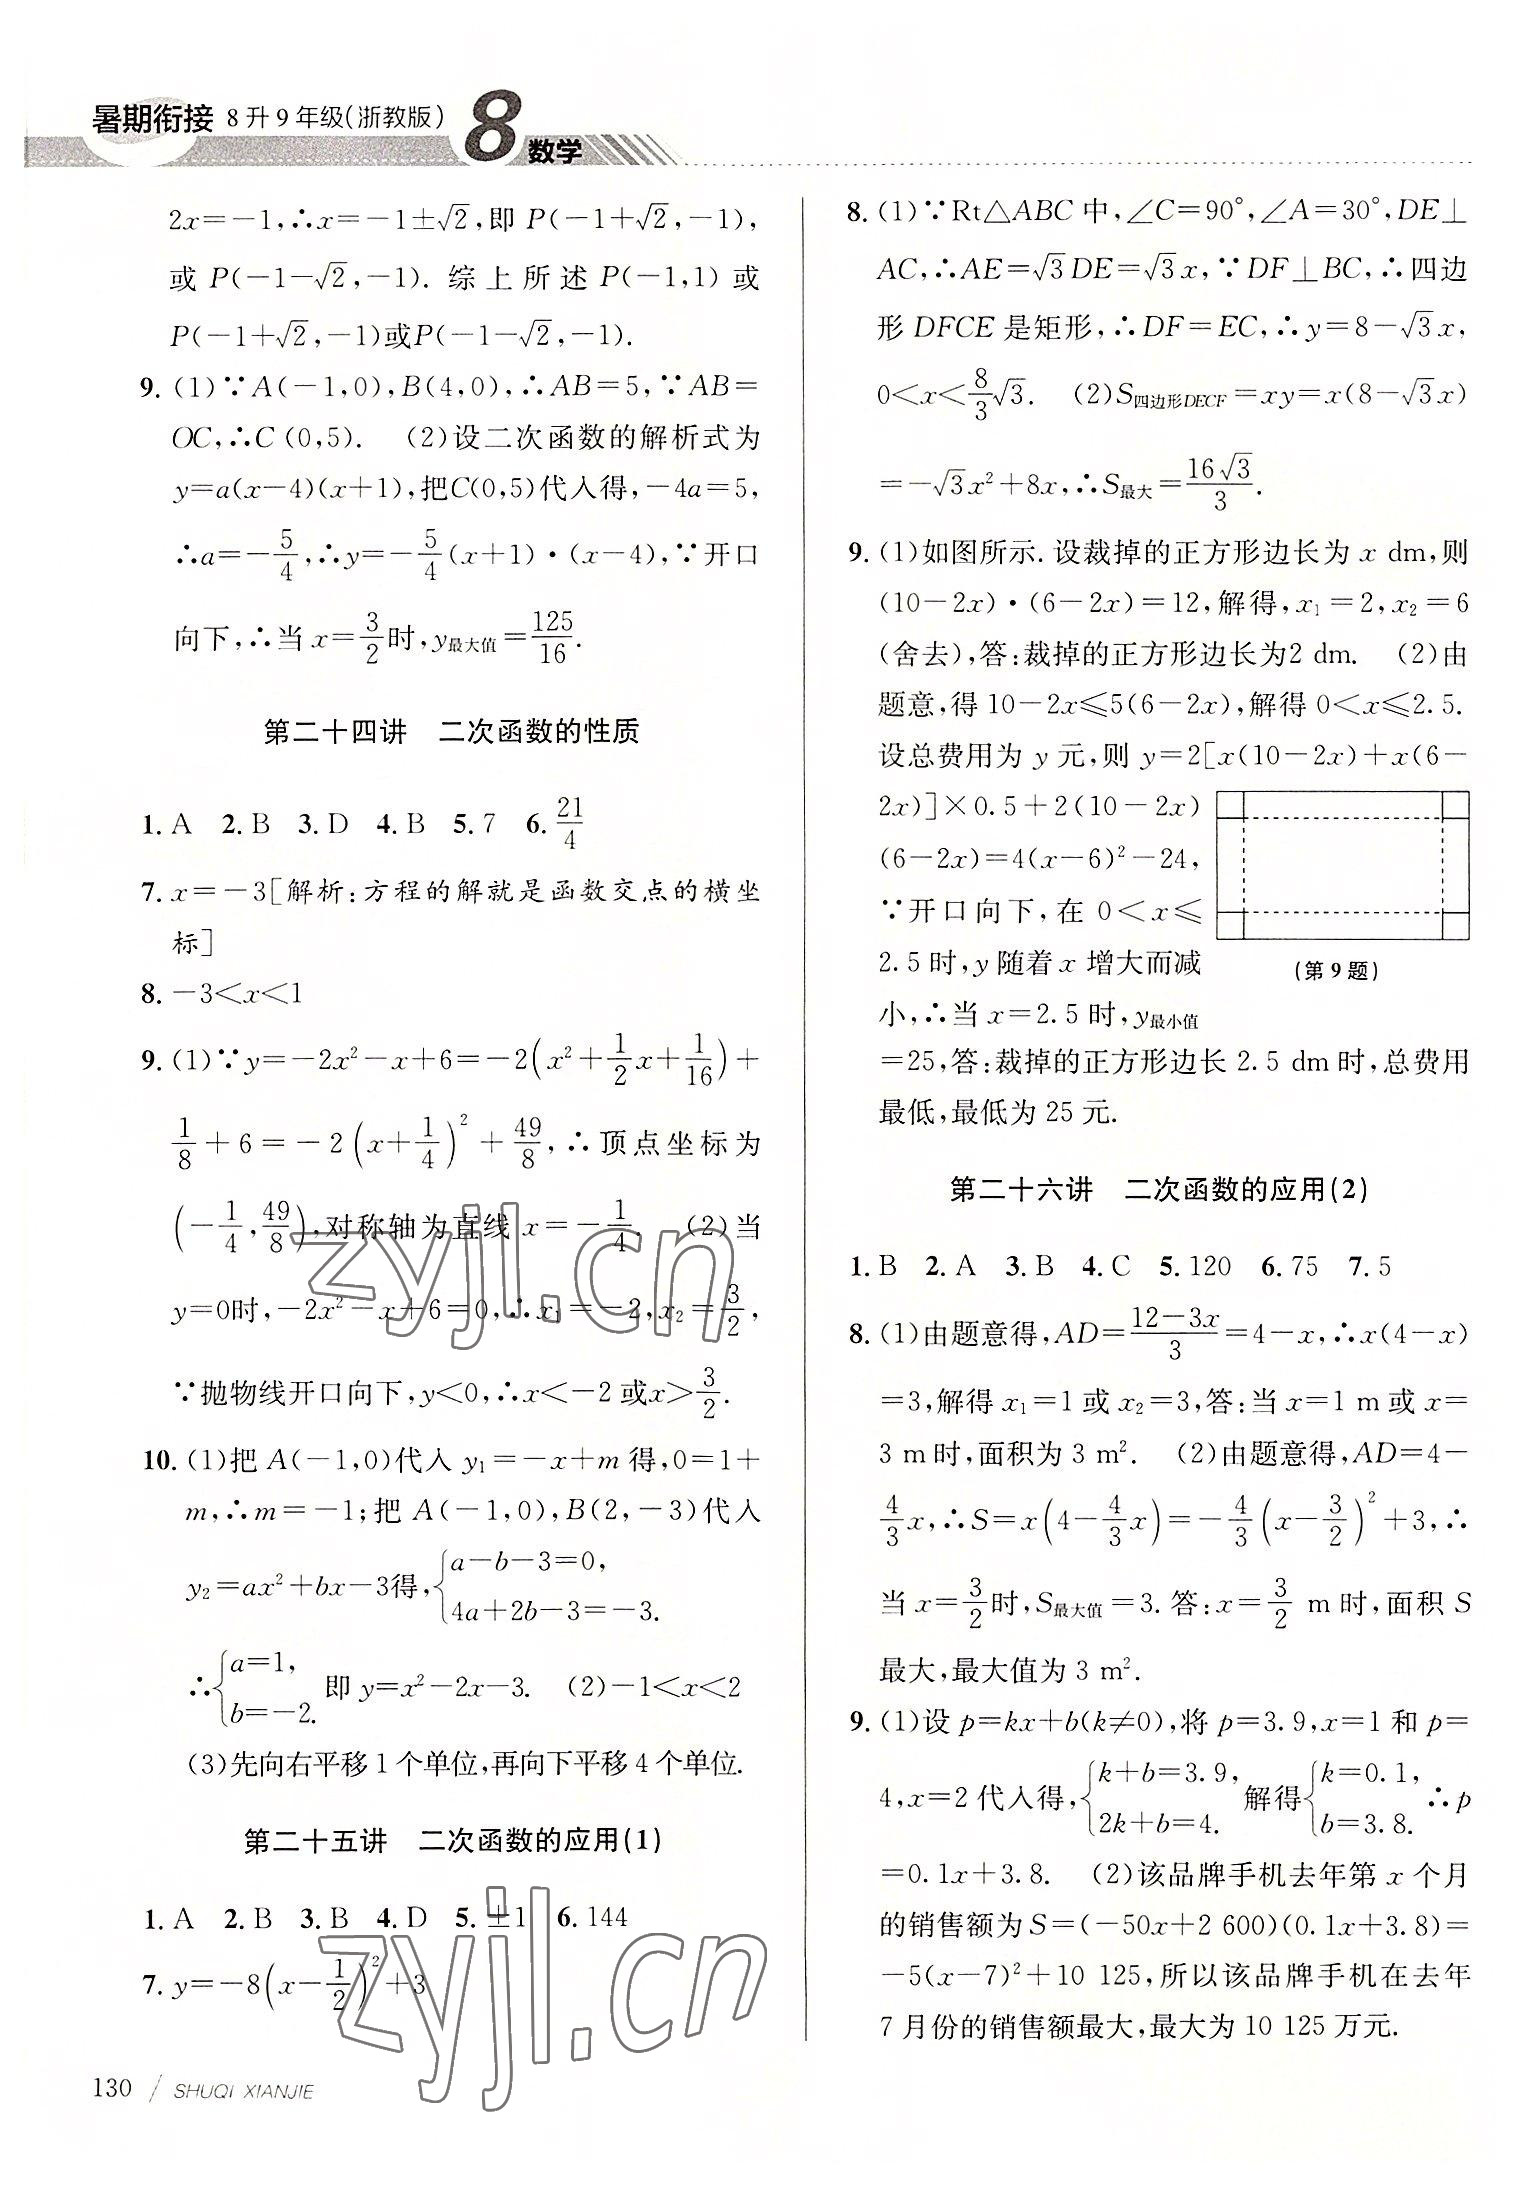 暑期衔接 8升9年级(浙教版) 8 数学
2x=-1,∴x=-1±√2,即 P(-1+√2,-1),
或 P(-1-√2,-1). 综上所述 P(-1,1) 或
P(-1+√2,-1)或P(-1-√2,-1).
9. (1)∵A(-1,0),B(4,0),∴AB=5,∵AB=
OC,∴C(0,5). (2)设二次函数的解析式为
y=a(x-4)(x+1),把C(0,5)代入得,-4a=5,
∴a=-5/4,∴y=-5/4(x+1)·(x-4),∵开口
向下,∴当 x=3/2时,y最大值=125/16.
第二十四讲 二次函数的性质
1. A 2. B 3. D 4. B 5. 7 6. 21/4
7. x=-3[解析:方程的解就是函数交点的横坐
标]
8. -3<x<1
9. (1)∵y=-2x²-x+6=-2(x²+1/2x+1/16)+
1/8+6=-2(x+1/4)²+49/8,∴顶点坐标为
(-1/4,49/8),对称轴为直线 x=-1/4. (2)当
y=0时,-2x²-x+6=0,∴x₁=-2,x₂=3/2,
∵抛物线开口向下,y<0,∴x<-2 或x>3/2.
10. (1)把 A(-1,0)代入 y₁=-x+m 得,0=1+
m,∴m=-1;把 A(-1,0),B(2,-3)代入
y₂=ax²+bx-3得,{a-b-3=0,
4a+2b-3=-3.
∴{a=1,
b=-2. 即 y=x²-2x-3. (2)-1<x<2
(3)先向右平移 1 个单位,再向下平移 4 个单位.
第二十五讲 二次函数的应用(1)
1. A 2. B 3. B 4. D 5. ±1 6. 144
7. y=-8(x-1/2)²+3
8. (1)∵Rt△ABC 中,∠C=90°,∠A=30°,DE⊥
AC,∴AE=√3DE=√3x,∵DF⊥BC,∴四边
形 DFCE 是矩形,∴DF=EC,∴y=8-√3x,
0<x<8/3√3. (2)S四边形DECF=xy=x(8-√3x)
=-√3x²+8x,∴S最大=16√3/3.
9. (1)如图所示. 设裁掉的正方形边长为 x dm,则
(10-2x)·(6-2x)=12,解得,x₁=2,x₂=6
(舍去),答:裁掉的正方形边长为2 dm. (2)由
题意,得 10-2x≤5(6-2x),解得 0<x≤2.5.
设总费用为 y 元,则 y=2[x(10-2x)+x(6-
2x)]×0.5+2(10-2x)
(6-2x)=4(x-6)²-24,
∵开口向下,在 0<x≤
2.5 时,y 随着 x 增大而减
小,∴当 x=2.5 时,y最小值
=25,答:裁掉的正方形边长 2.5 dm 时,总费用
最低,最低为 25 元.
(第 9 题)
第二十六讲 二次函数的应用(2)
1. B 2. A 3. B 4. C 5. 120 6. 75 7. 5
8. (1)由题意得,AD=12-3x/3=4-x,∴x(4-x)
=3,解得 x₁=1 或 x₂=3,答:当 x=1 m 或 x=
3 m 时,面积为 3 m². (2)由题意得,AD=4-
4/3x,∴S=x(4-4/3x)=-4/3(x-3/2)²+3,∴
当 x=3/2时,S最大值=3. 答:x=3/2 m 时,面积 S
最大,最大值为 3 m².
9. (1)设 p=kx+b(k≠0),将 p=3.9,x=1 和 p=
4,x=2 代入得,{k+b=3.9,
2k+b=4. 解得{k=0.1,
b=3.8. ∴p
=0.1x+3.8. (2)该品牌手机去年第 x 个月
的销售额为 S=(-50x+2 600)(0.1x+3.8)=
-5(x-7)²+10 125,所以该品牌手机在去年
7 月份的销售额最大,最大为 10 125 万元.
130 / SHUQI XIANJIE
zyjl.cn
zyjl.cn